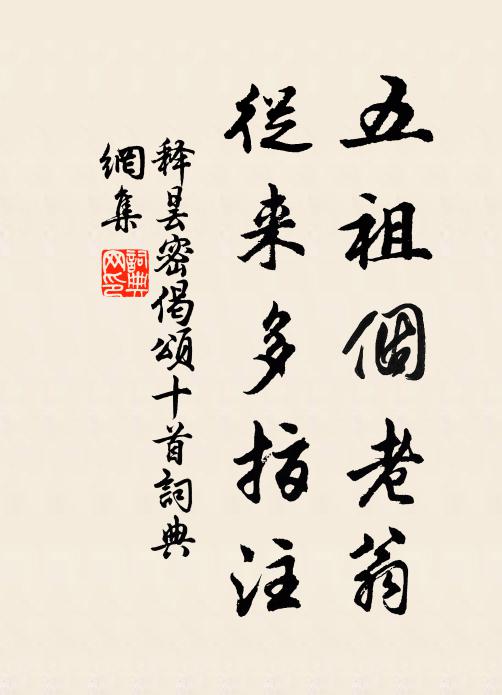 五祖個老翁
從来多指注
释曇密偈頌十首詞典
網集
詞典
网印